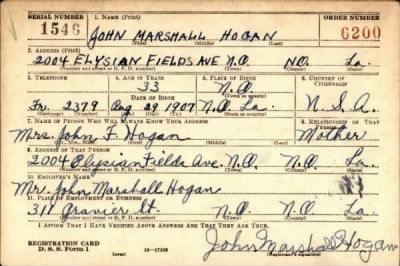 SERIAL NUMBER 1. NAME (Print) ORDER NUMBER
1546 JOHN MARSHALL HOGAN 6200
(First) (Middle) (Last)
2. ADDRESS (Print)
2004 ELYSIAN FIELDS AVE N.O. N.O. La.
(Number and street or R. F. D. number) (Town) (County) (State)
3. TELEPHONE 4. AGE IN YEARS 5. PLACE OF BIRTH 6. COUNTRY OF CITIZENSHIP
33 N.O.
DATE OF BIRTH
Fr. 2379 Aug 29 1907 N.O. La. U.S.A.
(Exchange) (Number) (Mo.) (Day) (Yr.) (Town or county) (State or country)
7. NAME OF PERSON WHO WILL ALWAYS KNOW YOUR ADDRESS 8. RELATIONSHIP OF THAT PERSON
Mrs. John F. Hogan Mother
(Mr., Mrs., Miss) (First) (Middle) (Last)
9. ADDRESS OF THAT PERSON
2004 Elysian Fields Ave. N.O. N.O. La.
(Number and street or R. F. D. number) (Town) (County) (State)
10. EMPLOYER'S NAME
Mr. John Marshall Hogan
11. PLACE OF EMPLOYMENT OR BUSINESS
311 Gravier St. N.O. N.O. La.
(Number and street or R. F. D. number) (Town) (County) (State)
I AFFIRM THAT I HAVE VERIFIED ABOVE ANSWERS AND THAT THEY ARE TRUE.
REGISTRATION CARD
D. S. S. Form 1 (over) 16-17105 John Marshall Hogan
(Registrant's signature)